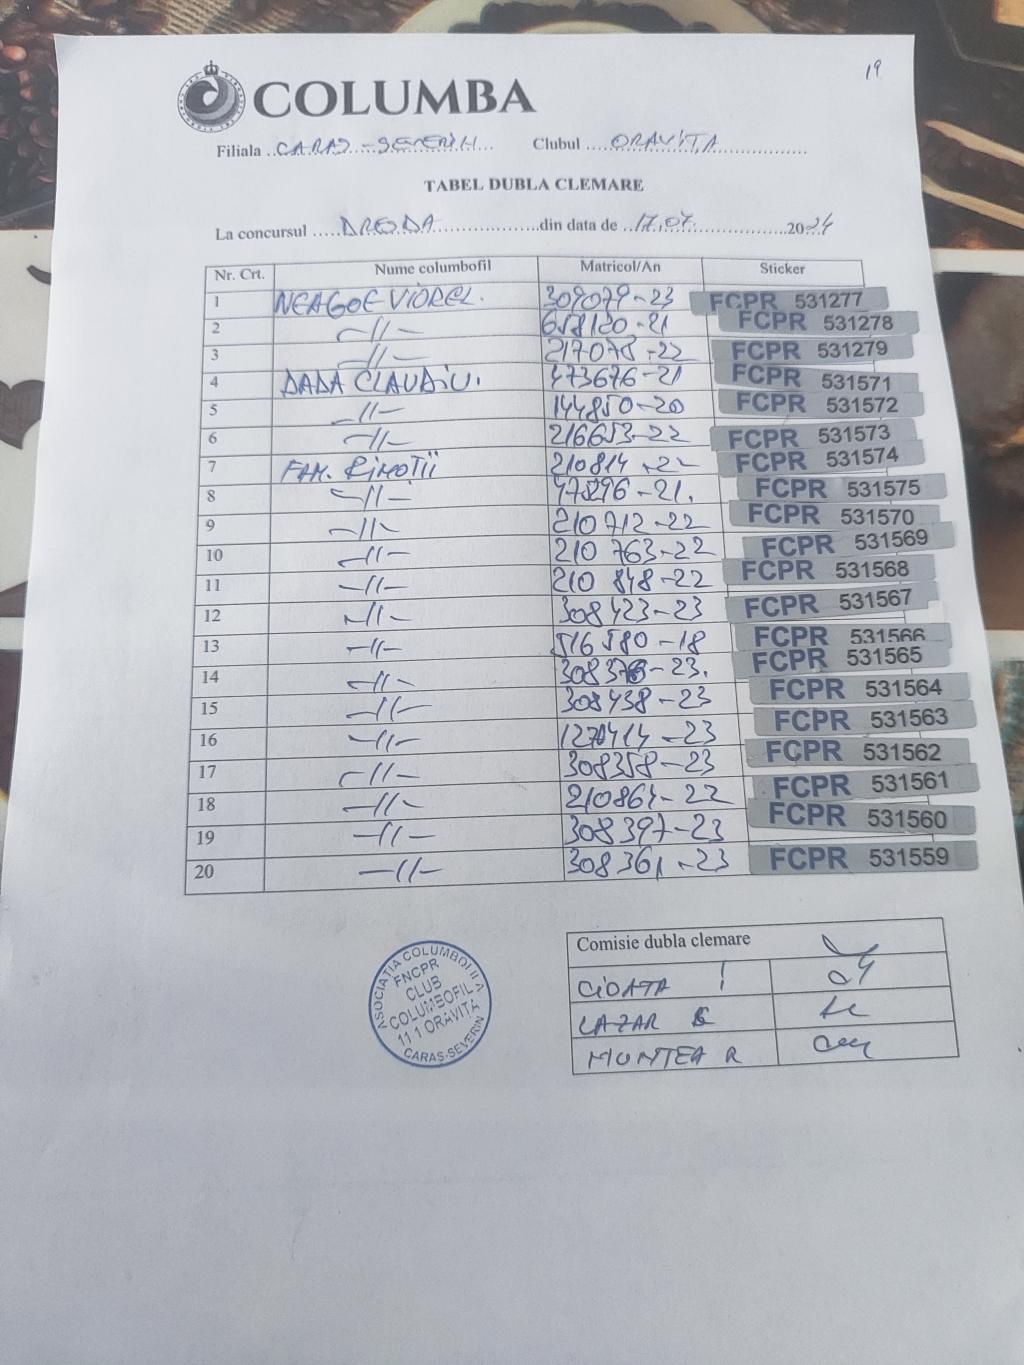 19
COLUMBA
Filiala ..CARAS-SEVERIN... Clubul ....ORAVITA..................
TABEL DUBLA CLEMARE
La concursul .....DRODA.....................din data de ..17.07.....................2024
Nr. Crt. Nume columbofil Matricol/An Sticker
1 NEAGOE VIOREL. 309079-23 FCPR 531277
2 -//- 658120-21 FCPR 531278
3 -//- 217078-22 FCPR 531279
4 DADA CLAUDIU. 473676-21 FCPR 531571
5 -//- 144850-20 FCPR 531572
6 -//- 216653-22 FCPR 531573
7 FAM. RIMOTII 210814-22 FCPR 531574
8 -//- FCPR 531575
9 -//- 210712-22 FCPR 531570
10 -//- 210 763-22 FCPR 531569
11 -//- 210 848-22 FCPR 531568
12 -//- 308423-23 FCPR 531567
13 -//- 516580-18 FCPR 531566
14 -//- FCPR 531565
15 -//- 308438-23 FCPR 531564
16 -//- 1270414-23 FCPR 531563
17 -//- 308358-23 FCPR 531562
18 -//- 210861-22 FCPR 531561
19 -//- 308397-23 FCPR 531560
20 -//- 308361-23 FCPR 531559
Comisie dubla clemare
CIOATA I
LAZAR
MUNTEA R
ASOCIATIA COLUMBOFILA
FNCPR
CLUB
COLUMBOFIL
111 ORAVITA
CARAS-SEVERIN